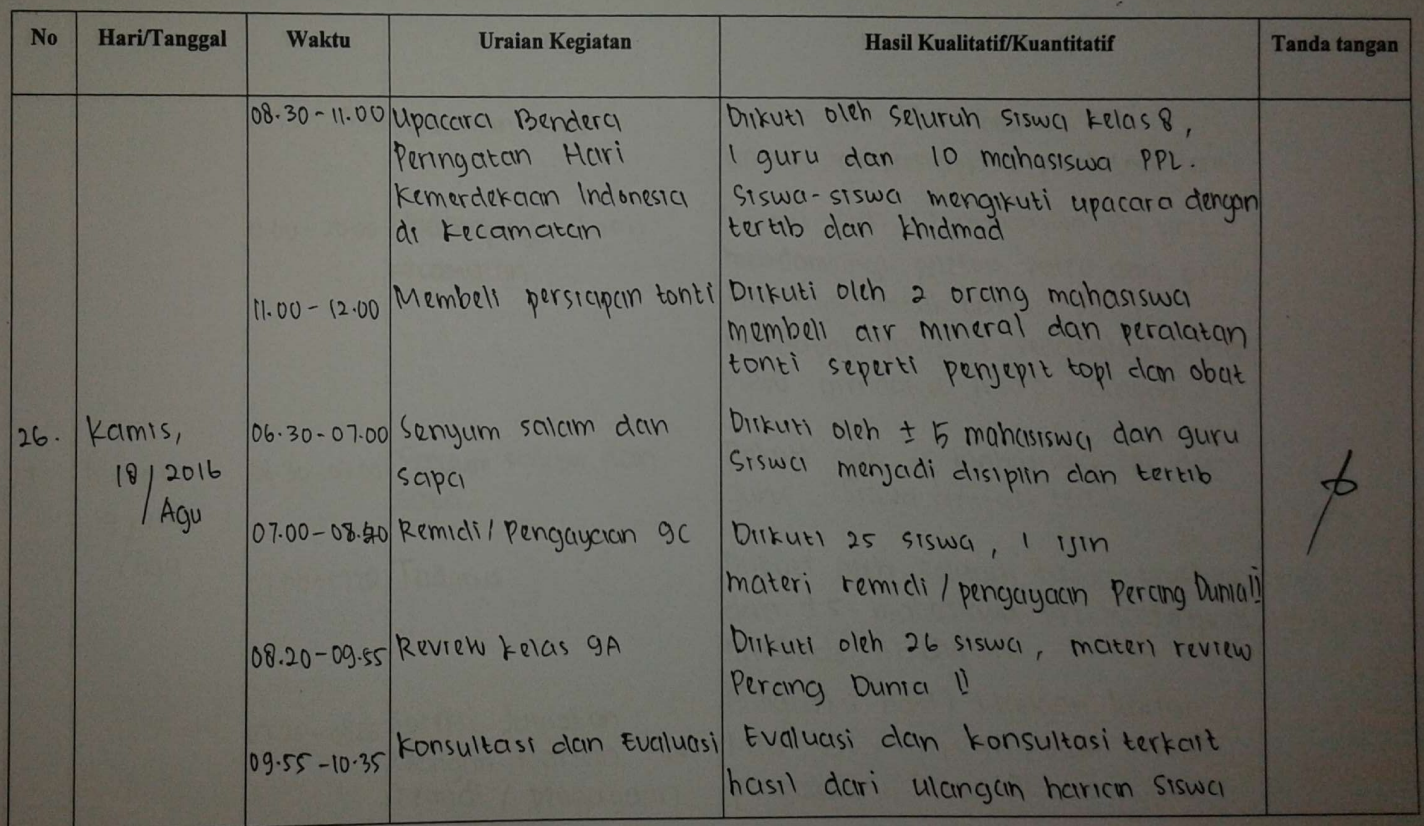 No Hari/Tanggal Waktu Uraian Kegiatan Hasil Kualitatif/Kuantitatif Tanda tangan
08.30 - 11.00 Upacara Bendera Diikuti oleh seluruh siswa kelas 8,
Peringatan Hari 1 guru dan 10 mahasiswa PPL.
Kemerdekaan Indonesia Siswa-siswa mengikuti upacara dengan
di kecamatan tertib dan khidmad
11.00 - 12.00 Membeli persiapan tonti Diikuti oleh 2 orang mahasiswa
membeli air mineral dan peralatan
tonti seperti penjepit topi dan obat
26. Kamis, 06.30 - 07.00 Senyum salam dan Diikuti oleh ± 5 mahasiswa dan guru
18 / 2016 sapa Siswa menjadi disiplin dan tertib
Agu
07.00 - 08. Remidi / Pengayaan 9C Diikuti 25 siswa, 1 ijin
materi remidi / pengayaan Perang Dunia II
08.20 - 09.55 Review kelas 9A Diikuti oleh 26 siswa, materi review
Perang Dunia II
09.55 - 10.35 Konsultasi dan Evaluasi Evaluasi dan konsultasi terkait
hasil dari ulangan harian siswa